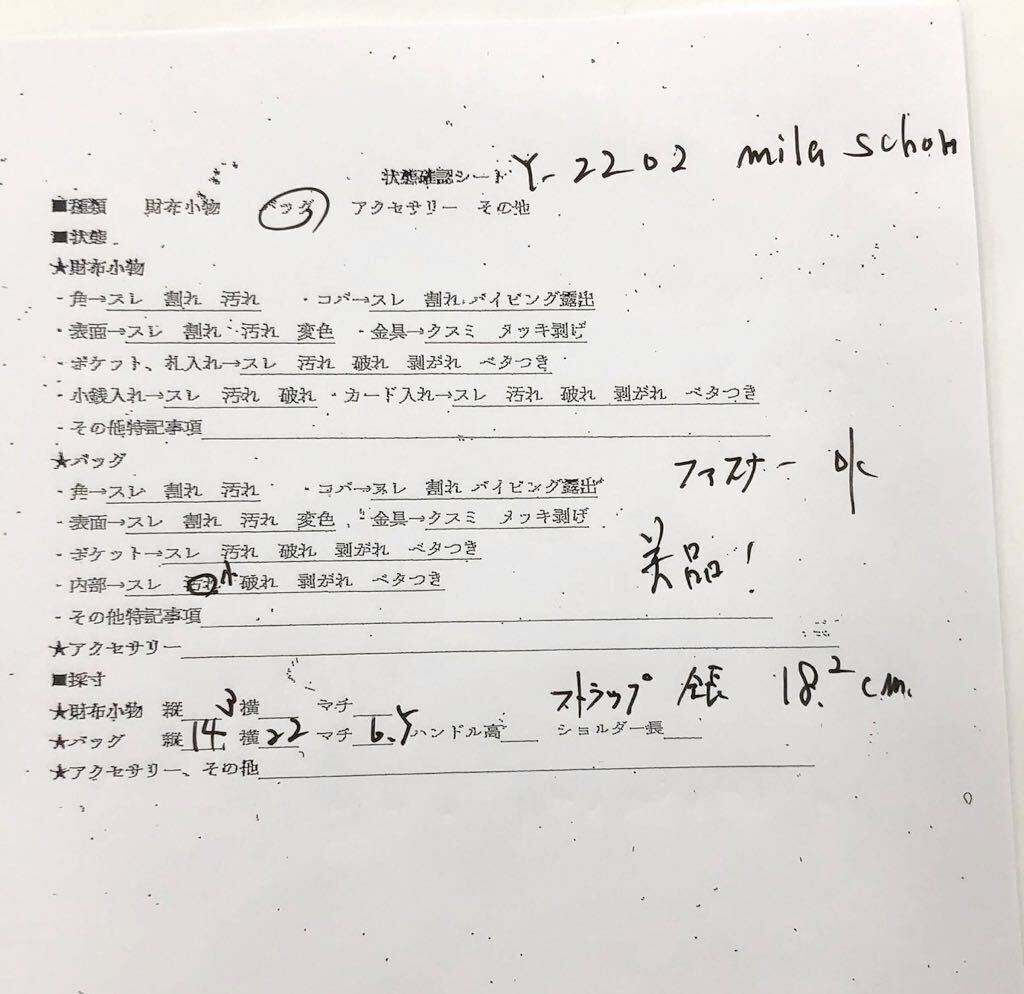 状態確認シート Y-2202 mila schon
■種類 財布小物 バッグ アクセサリー その他
■状態
★財布小物
・角→スレ 割れ 汚れ ・コバ→スレ 割れ パイピング露出
・表面→スレ 割れ 汚れ 変色 ・金具→クスミ メッキ剥げ
・ポケット、札入れ→スレ 汚れ 破れ 剥がれ ベタつき
・小銭入れ→スレ 汚れ 破れ ・カード入れ→スレ 汚れ 破れ 剥がれ ベタつき
・その他特記事項
★バッグ
・角→スレ 割れ 汚れ ・コバ→スレ 割れ パイピング露出
ファスナー o/c
・表面→スレ 割れ 汚れ 変色 ・金具→クスミ メッキ剥げ
・ポケット→スレ 汚れ 破れ 剥がれ ベタつき
美品!
・内部→スレ 汚れ 小 破れ 剥がれ ベタつき
・その他特記事項
★アクセサリー
■採寸
ストラップ 全長 18.2cm.
★財布小物 縦 3 横 マチ
★バッグ 縦 14 横 22 マチ 6.5 ハンドル高 ショルダー長
★アクセサリー、その他